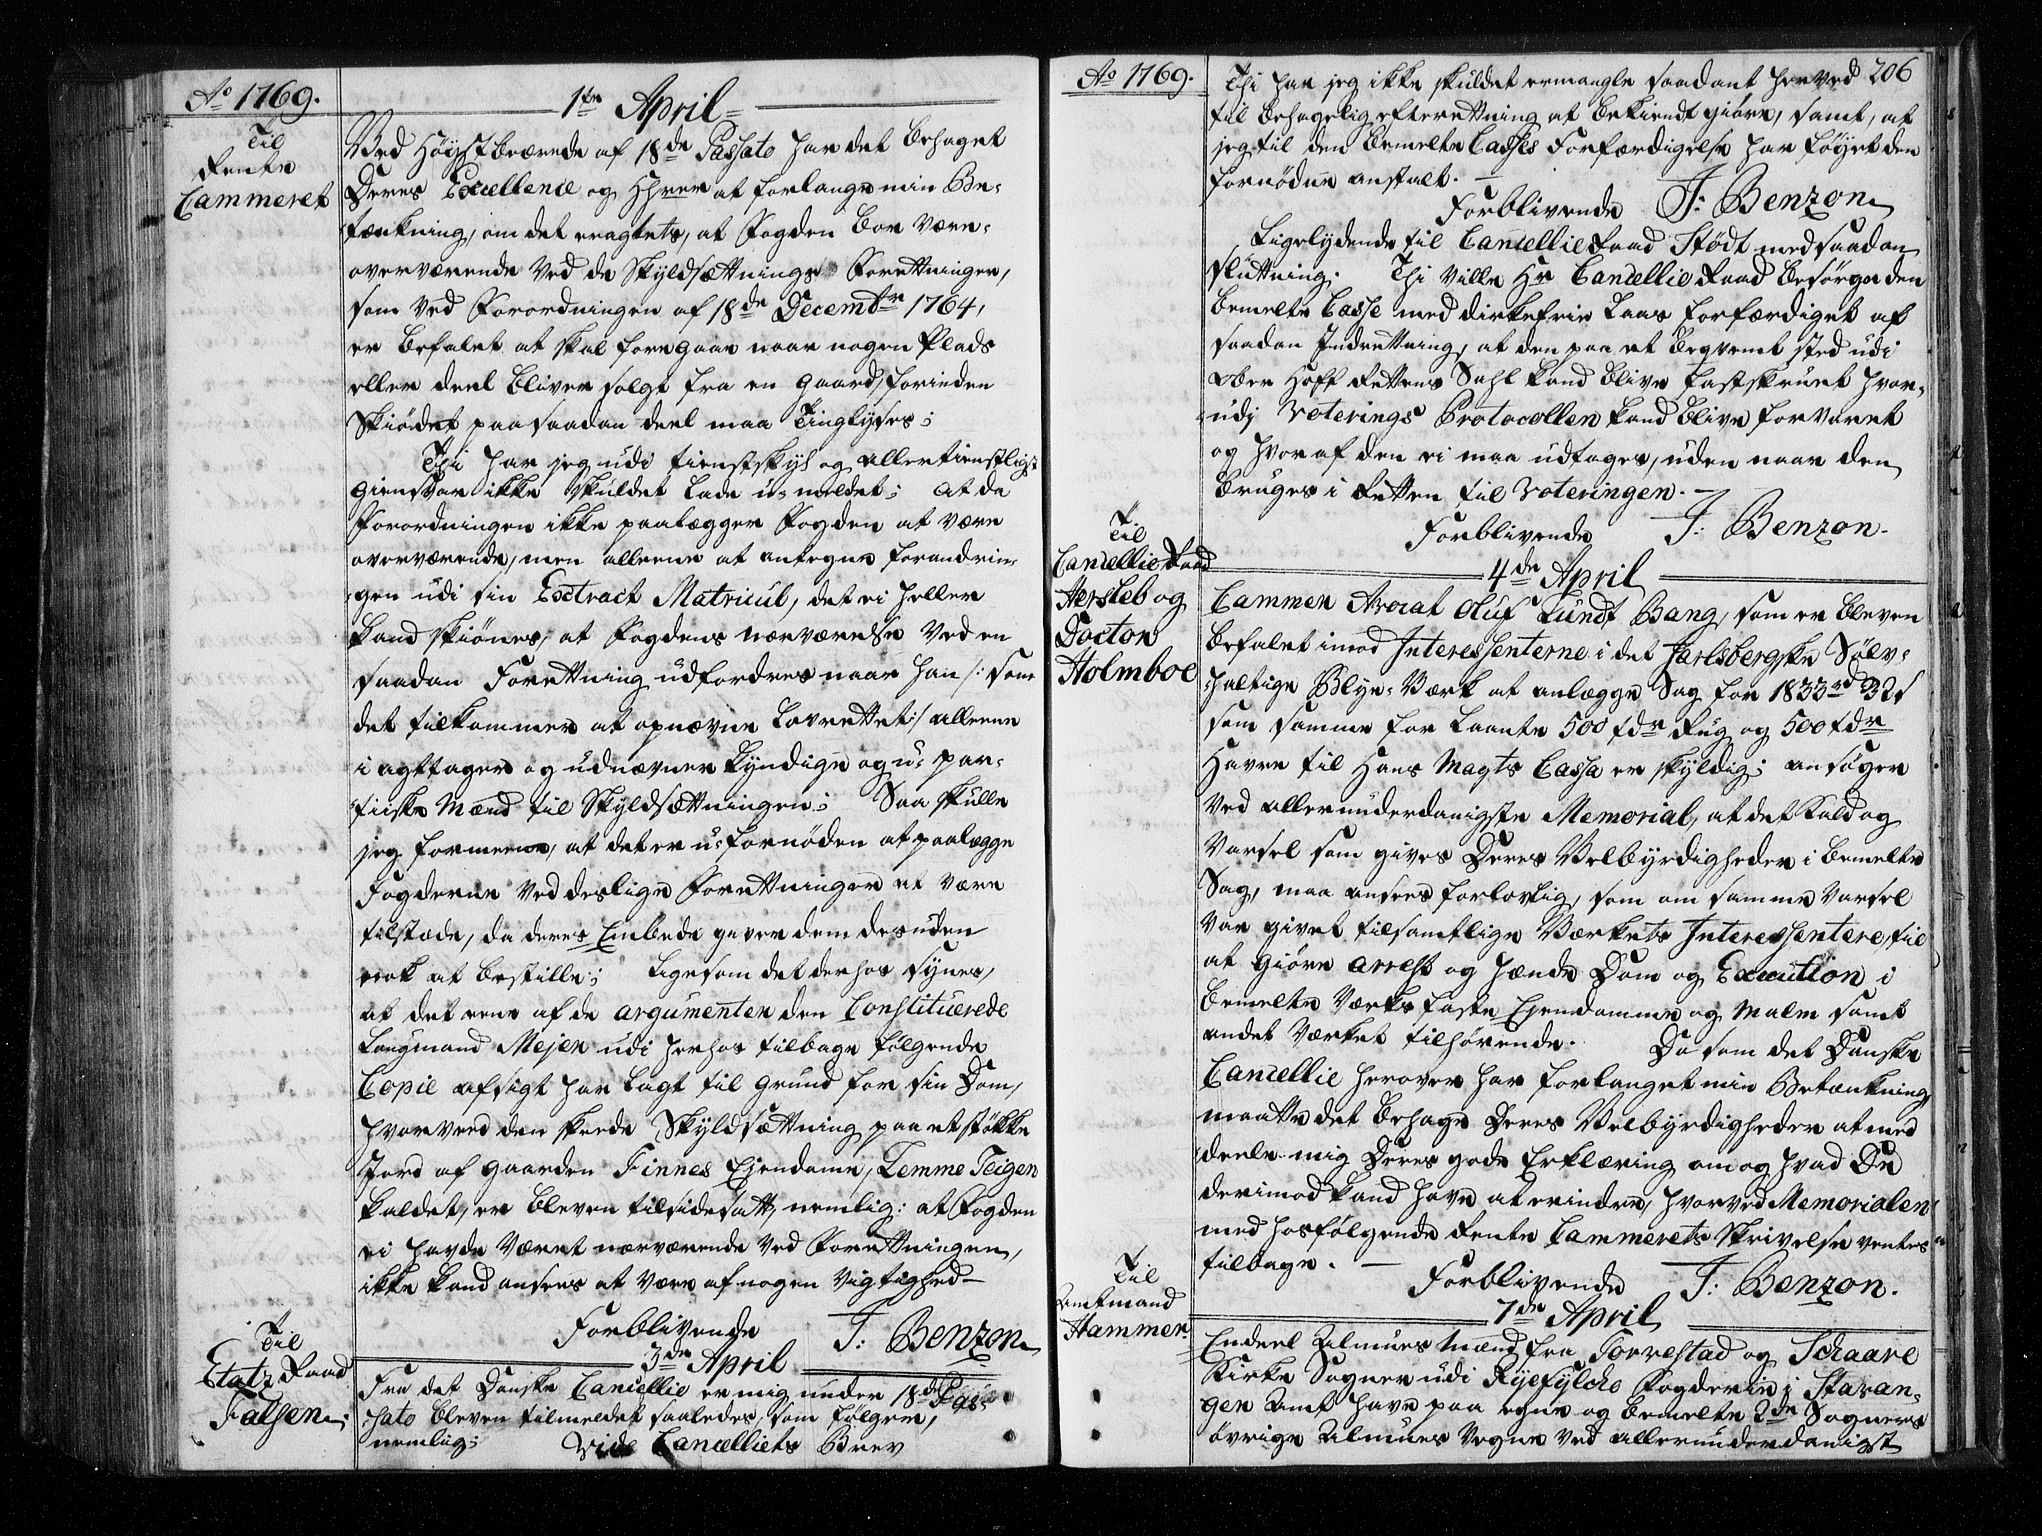 Ao 1769.
1te April
Til
Rente
Cammeret
Ved Höystbeærede af 18de Passato har det behaget
Deres Excellence og Hhrer at forlange min Be-
tænkning, om det eragtets, at Fogden bör være
overværende ved de Skyldsættnings Forrettninger,
som ved Forordningen af 18de Decembr 1764,
er befalet at skal foregaae naar nogen Plads
eller deel bliver solgt fra en gaard, forinden
Skiödet paa saadan deel maa Tinglyses;
Thi har jeg udi tienstskyl og allertienstligst
giensvar ikke skuldet lade u-meldet; at da
Forordningen ikke paalegger Fogden at være
overværende, men alleene at antegne forandrin-
gen udi sin Extract Matricul, det ei heller
kand skiönes, at Fogdens nærværelse ved en
saadan Forrettning udfordres naar han /: som
det tilkommer at opnævne Lavrettet :/ alleene
i agttager og udnævner kyndige og u-par-
tiske Mænd til Skyldsættningen; Saa skulle
jeg formeene, at det er u-fornöden at paalægge
Fogderne ved deslige Forrettninger at være
tilstæde, da deres Embede giver dem desuden
nok at bestille; Ligesom det derhos synes,
at det eene af de argumenter den Constituerede
Laugmand Mejer udi herhos tilbage fölgende
Copie afsigt har lagt til grund for sin Dom,
hvorved den skeede Skyldsættning paa et stökke
Jord af gaarden Finnes Ejendome, Lemme Teigen
kaldet, er bleven tilsidesatt, nemlig: at Fogden
ei havde været nærværende ved Forrettningen,
ikke kand ansees at være af nogen vigtighed
Forblivende J: Benzon
3de April
Til
Etatz Raad
Falsen.
Fra det Danske Cancellie er mig under 18de Pas-
sato bleven tilmeldet saaledes, som fölger,
nemlig; Vide Cancelliets Brev
Ao 1769.
206
Thi har jeg ikke skuldet ermangle saadant herved
til behagelig efterrettning at bekiendt giöre, samt, at
jeg til den bemelte Casses Forfærdigelse har föyet den
fornödne anstalt.
Forblivende J: Benzon
Ligelydende til Cancellie Raad Stödt med saadan
sluttning. Thi ville Hr Cancellie Raad besörge den
bemelte Casse med dirkefrie Laas forfærdiget af
saadan Indrettning, at den paa et beqvemt sted udi
Ober Hoff Rettens Sahl kand blive fastskruet hvor-
udj Voterings Protocollen kand blive forvaret
og hvor af den ei maa udtages, uden naar den
bruges i Retten til Voteringen.
Forblivende J: Benzon.
4de April
Til
Cancellie Raad
Hersleb og
Doctor
Holmboe
Cammer Avocat Oluf Lundt Bang, som er bleven
befalet imod Interessenterne i det Jarlsbergske Sölv-
haltige Blye-Værk at anlægge Sag for 1833 rd 32 s
som samme for laante 500 tdr Rug og 500 tdr
Havre til Hans Mayts Cassa er skyldig; ansöger
ved allerunderdanigste Memorial, at det Kald og
Varsel som gives Deres Velbyrdigheder i bemelte
Sag, maa ansees forlovlig, som om samme Varsel
var givet til samtlige Værkets Interessentere, til
at giöre arrest og hænde Dom og Execution i
bemelte Værks faste Ejendomme og malm samt
andet Værket tilhörende. Da som det Danske
Cancellie herover har forlanget min Betænkning,
maatte det behage Deres Velbyrdigheder at med
deele mig Deres gode Erklæring om og hvad De
derimod kand have at erindre, hvorved Memorialen
med hosfölgende Rente Cammerets Skrivelse ventes
tilbage.
Forblivende J: Benzon.
7de April
Til
Amtmand
Hammer.
Endeel Almues Mænd fra Torrestad og Schaare
Kirke Sogner udi Ryefylche Fogderie i Stavan-
gen Amt have paa egne og bemelte 2de Sogners
övrige Almues Vegne ved allerunderdanigst